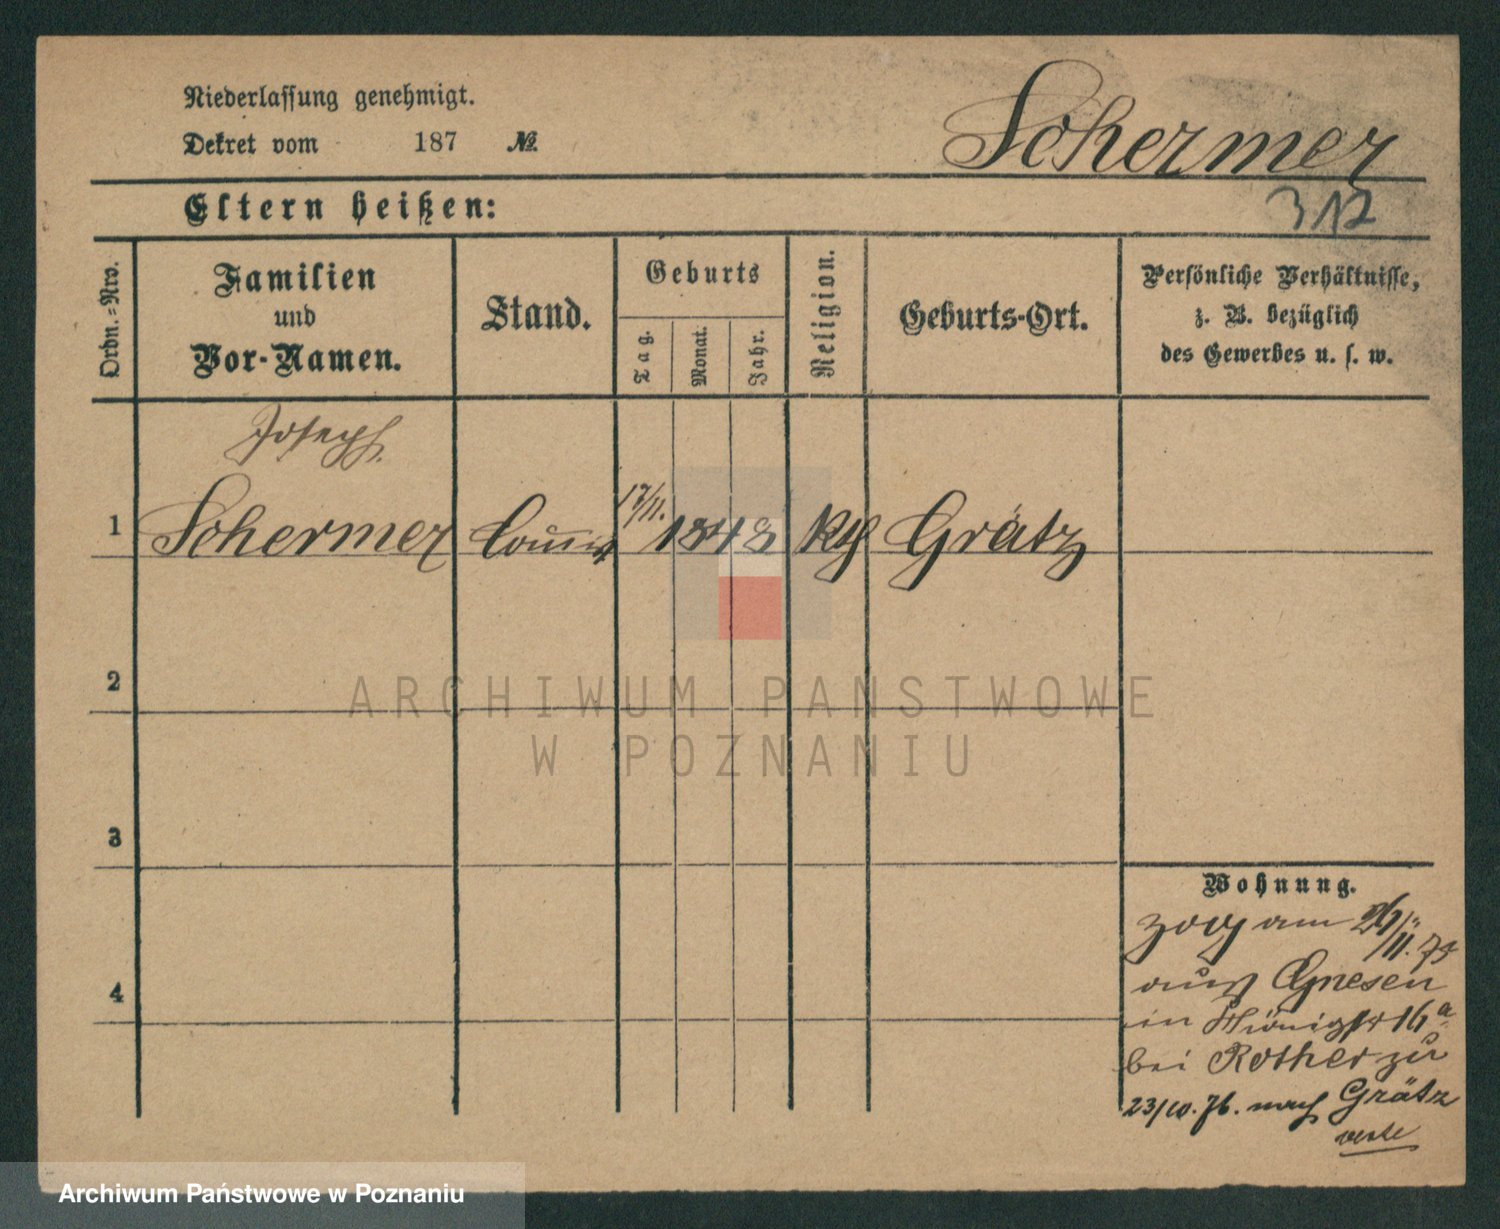 Niederlassung genehmigt.
Schermer
Dekret vom 187 №
317
Eltern heißen:
Ordn.=Nro.
Familien
und
Vor-Namen.
Stand.
Geburts
Tag.
Monat.
Jahr.
Religion.
Geburts-Ort.
Persönliche Verhältnisse,
z. B. bezüglich
des Gewerbes u. s. w.
Joseph
1 Schermer 17/11. 1848 kth Grätz
2
ARCHIWUM PAŃSTWOWE
W POZNANIU
3
4
Wohnung.
zog am 26/11. 75
aus Gnesen
in 16a
bei Rother zu
23/10. 76. nach Grätz
Archiwum Państwowe w Poznaniu